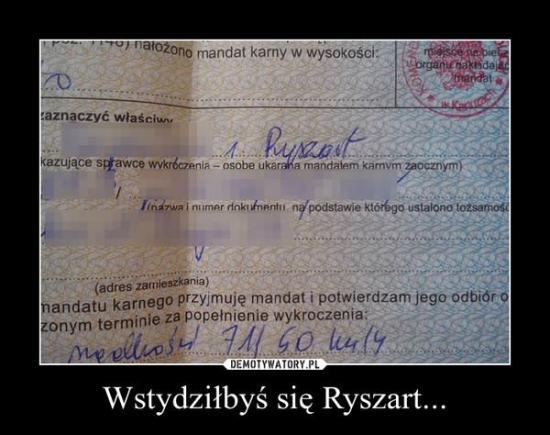 nałożono mandat karny w wysokości:
miejsce na pieczęć
organu nakładając
mandat
w Kartuzach
0
zaznaczyć właściwy
1. Ryszart
kazujące sprawcę wykroczenia – osobę ukaraną mandatem karnym zaocznym)
(nazwa i numer dokumentu, na podstawie którego ustalono tożsamość
(adres zamieszkania)
mandatu karnego przyjmuję mandat i potwierdzam jego odbiór o
zonym terminie za popełnienie wykroczenia:
DEMOTYWATORY.PL
Wstydziłbyś się Ryszart...